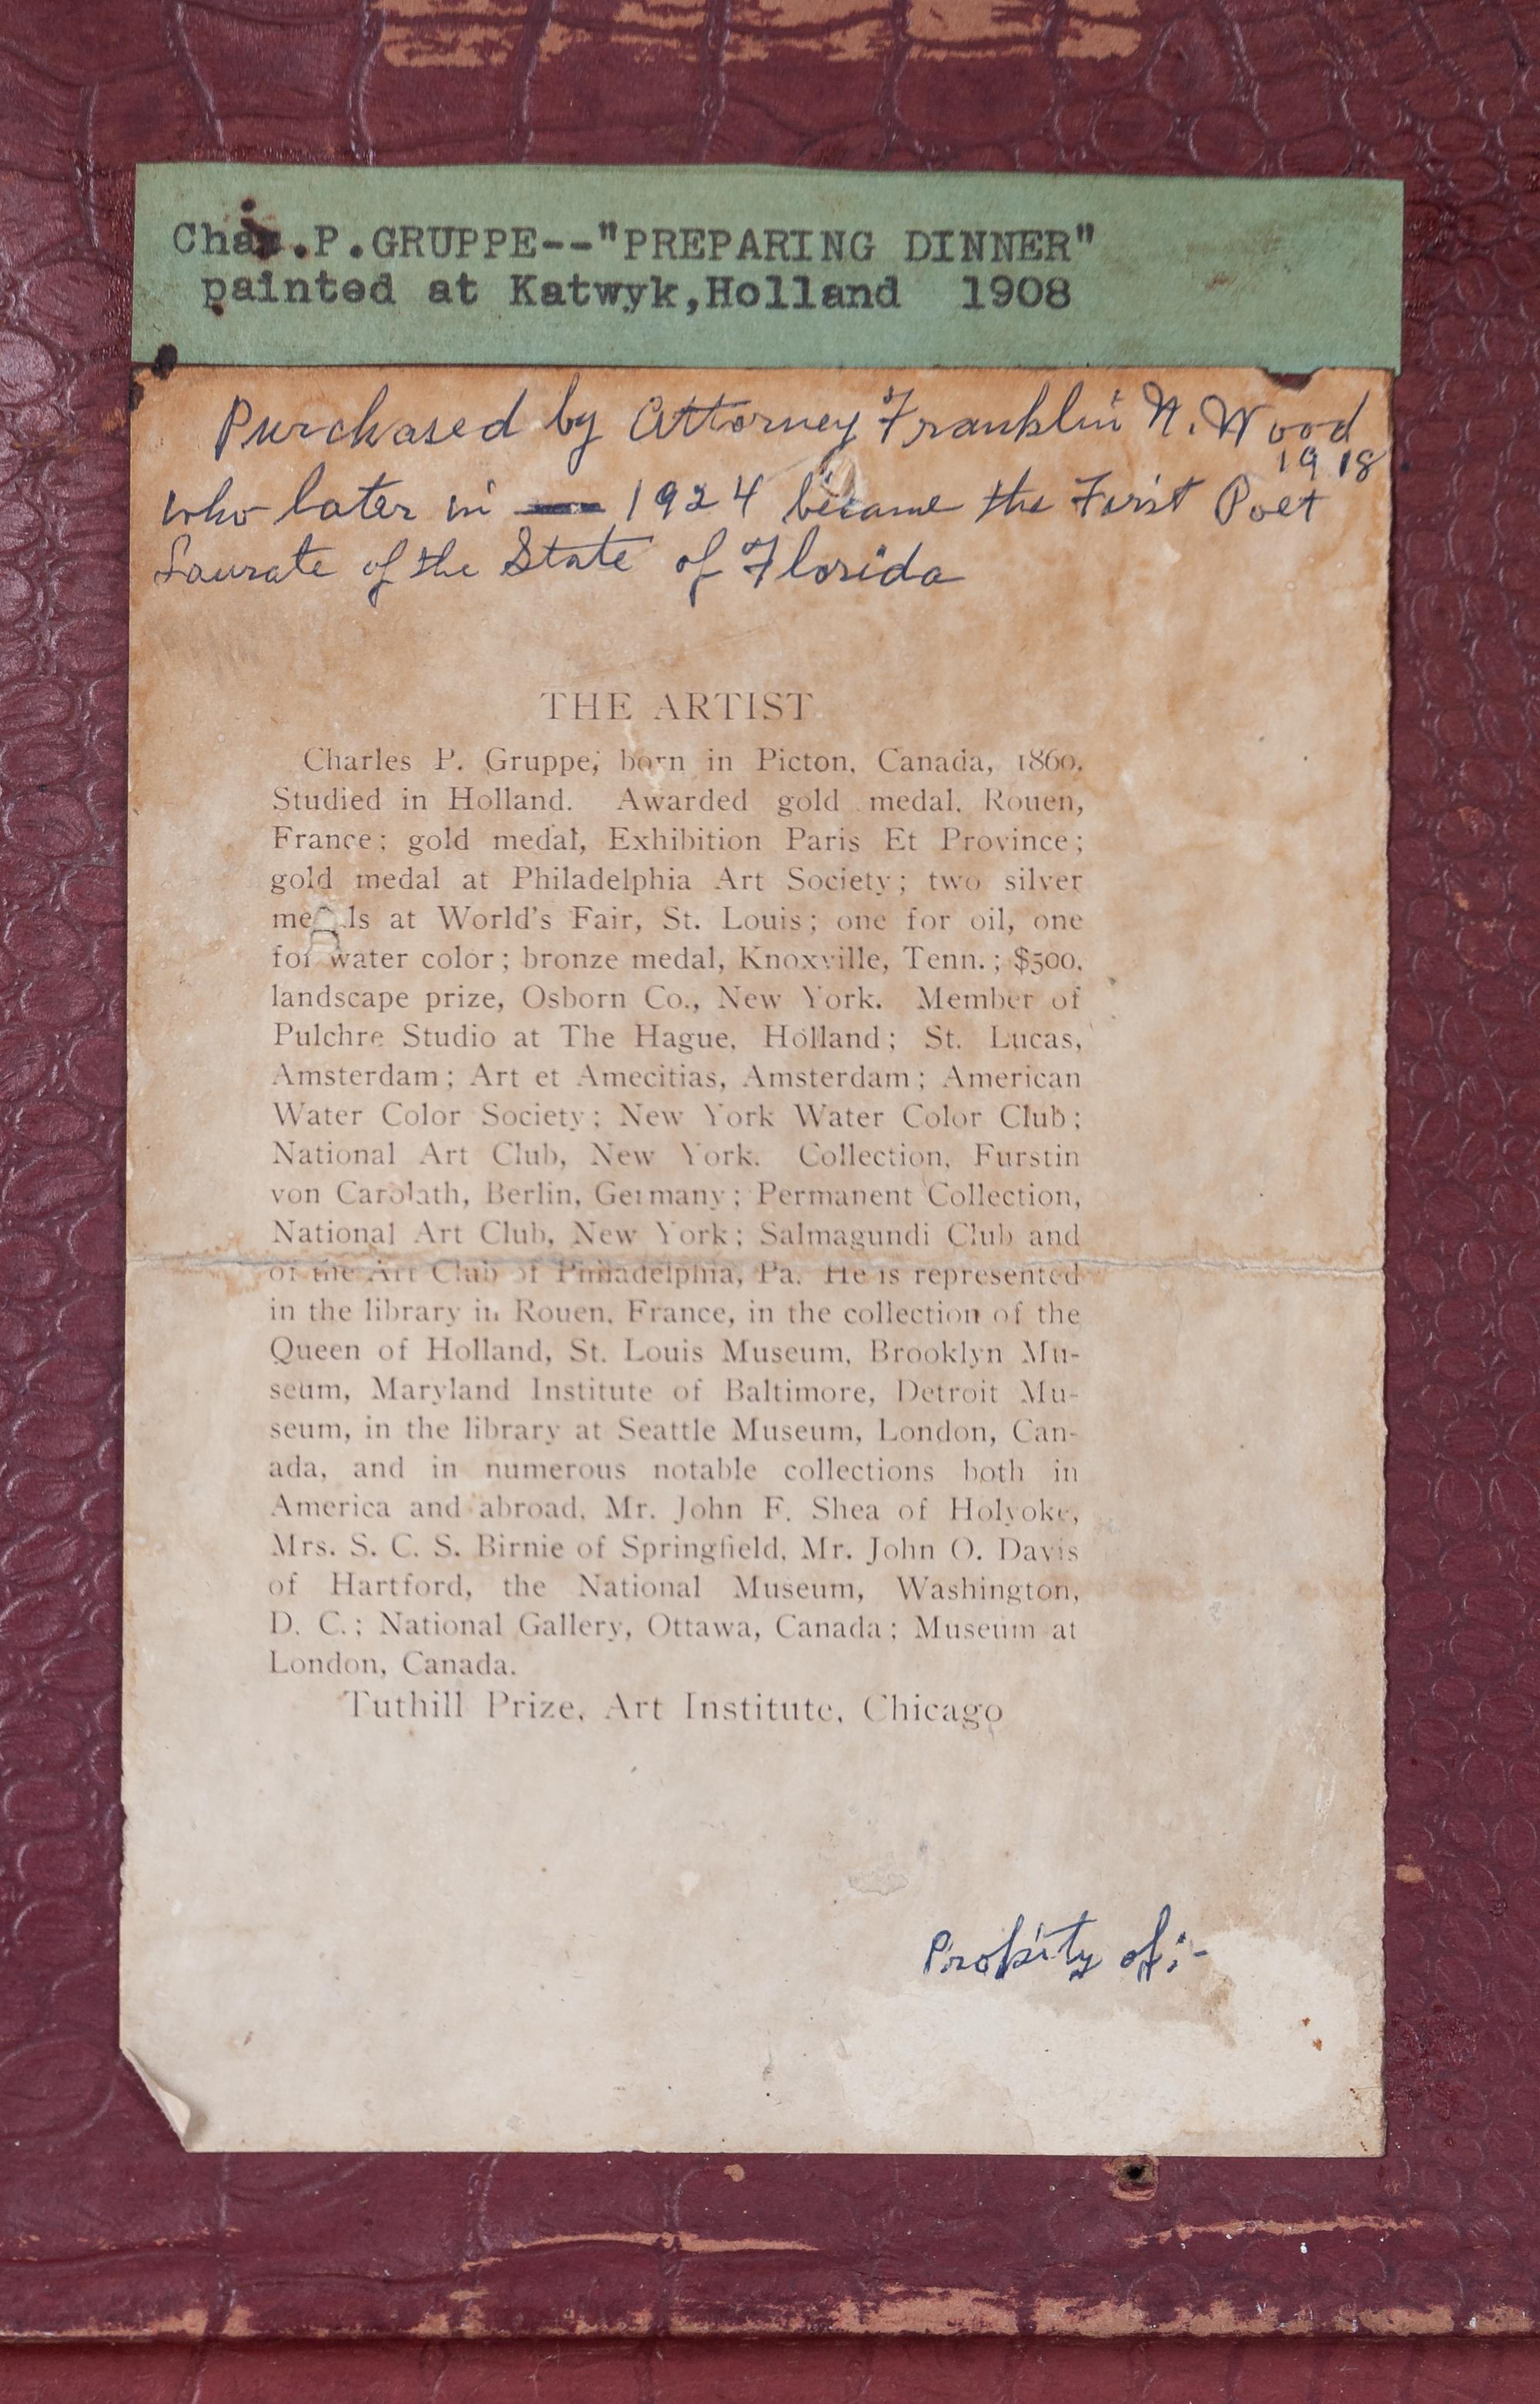 Chas.P.GRUPPE--"PREPARING DINNER"
painted at Katwyk,Holland 1908
Purchased by Attorney Franklin N. Wood
1918
who later in 1924 became the First Poet
Laurate of the State of Florida
THE ARTIST
Charles P. Gruppe, born in Picton, Canada, 1860.
Studied in Holland. Awarded gold medal, Rouen,
France; gold medal, Exhibition Paris Et Province;
gold medal at Philadelphia Art Society; two silver
medals at World's Fair, St. Louis; one for oil, one
for water color; bronze medal, Knoxville, Tenn.; $500.
landscape prize, Osborn Co., New York. Member of
Pulchre Studio at The Hague, Holland; St. Lucas,
Amsterdam; Art et Amecitias, Amsterdam; American
Water Color Society; New York Water Color Club;
National Art Club, New York. Collection, Furstin
von Carolath, Berlin, Germany; Permanent Collection,
National Art Club, New York; Salmagundi Club and
of the Art Club of Philadelphia, Pa. He is represented
in the library in Rouen, France, in the collection of the
Queen of Holland, St. Louis Museum, Brooklyn Mu-
seum, Maryland Institute of Baltimore, Detroit Mu-
seum, in the library at Seattle Museum, London, Can-
ada, and in numerous notable collections both in
America and abroad, Mr. John F. Shea of Holyoke,
Mrs. S. C. S. Birnie of Springfield, Mr. John O. Davis
of Hartford, the National Museum, Washington,
D. C.; National Gallery, Ottawa, Canada; Museum at
London, Canada.
Tuthill Prize, Art Institute, Chicago
Probity of:-